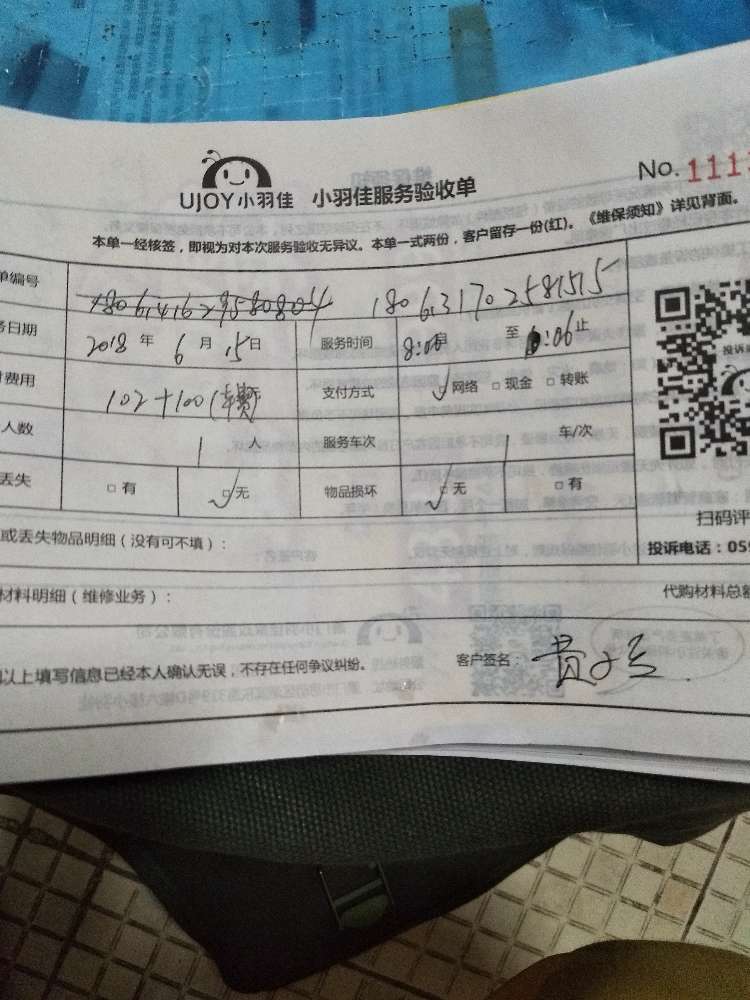 UJOY小羽佳 小羽佳服务验收单 No. 111
本单一经核签，即视为对本次服务验收无异议。本单一式两份，客户留存一份(红)。《维保须知》详见背面。
单编号 1806131702581515
务日期 2018 年 6 月 15 日 服务时间 8:00 至 :06 止
费用 102+100(车费) 支付方式 ☑网络 □现金 □转账
人数 1 人 服务车次 1 车/次
丢失 □有 ☑无 物品损坏 ☑无 □有
扫码评
或丢失物品明细（没有可不填）： 投诉电话：059
材料明细（维修业务）： 代购材料总额
以上填写信息已经本人确认无误，不存在任何争议纠纷。 客户签名：